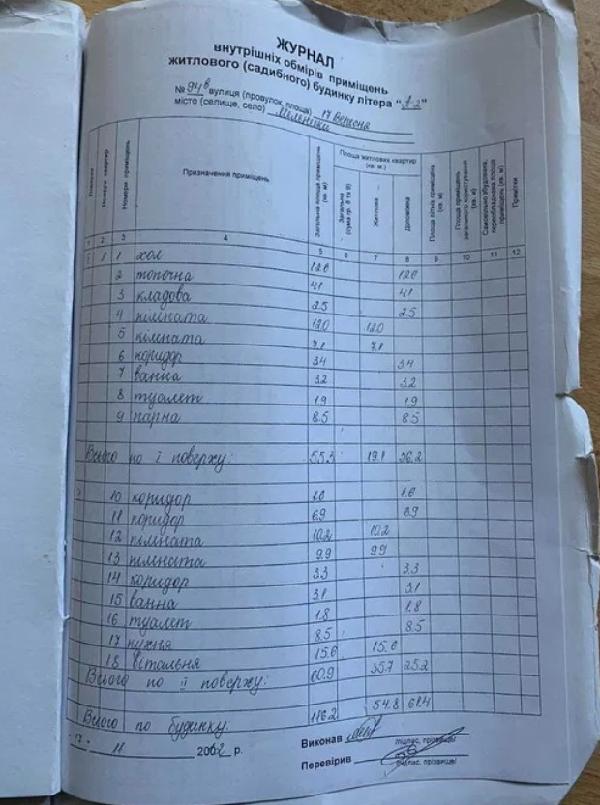 ЖУРНАЛ
внутрішніх обмірів приміщень
житлового (садибного) будинку літера "А-2"
№ 94в вулиця (провулок, площа) 17 Вересня
місте (селище, село)
Номери квартир
Номери приміщень
Призначення приміщень
Загальна площа приміщень (кв. м)
Площа житлових квартир (кв. м.)
Загальна (сума гр. 8 та 9)
Житлова
Допоміжна
Площа літніх приміщень (кв. м)
Площа приміщень загального користування (кв. м)
Самовільно збудована, переобладнана площа приміщень (кв. м)
Примітки
1 2 3 4 5 6 7 8 9 10 11 12
1 1 хол 12.0 12.0
2 топочна 4.1 4.1
3 кладова 2.5 2.5
4 кімната 12.0 12.0
5 кімната 7.1 7.1
6 коридор 3.4 3.4
7 ванна 3.2 3.2
8 туалет 1.9 1.9
9 парна 8.5 8.5
Всього по І поверху: 55.3 19.1 36.2
10 коридор
11 коридор 6.9 6.9
12 кімната 10.2 10.2
13 кімната 9.9 9.9
14 коридор 3.3 3.3
15 ванна 3.1 3.1
16 туалет 1.8 1.8
17 кухня 8.5 8.5
18 вітальня 15.6 15.6
Всього по ІІ поверху: 60.9 35.7 25.2
Всього по будинку: 116.2 54.8 61.4
17 11 2002 р.
Виконав
підпис, прізвище
Перевірив
підпис, прізвище